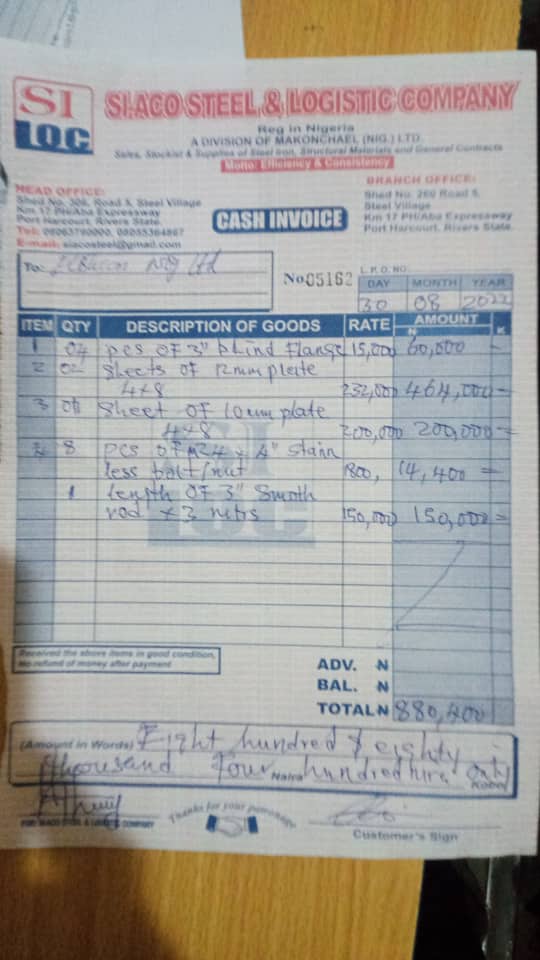 SI
LOG
SIACO STEEL & LOGISTIC COMPANY
Reg in Nigeria
A DIVISION OF MAKONCHAEL (NIG.) LTD.
Sales, Stockist & Supplies of Steel Iron, Structural Materials and General Contracts
Motto: Efficiency & Consistency
HEAD OFFICE:
Shed No. 306, Road 5, Steel Village
Km 17 PH/Aba Expressway
Port Harcourt, Rivers State.
Tel: 08063790000, 08055364867
E-mail: siacosteel@gmail.com
BRANCH OFFICE:
Shed No. 260 Road 5,
Steel Village
Km 17 PH/Aba Expressway
Port Harcourt, Rivers State.
CASH INVOICE
To: Nig Ltd
No 05162
L.P.O. NO.
DAY MONTH YEAR
30 08 2022
ITEM QTY DESCRIPTION OF GOODS RATE AMOUNT
N K
1 04 pcs OF 3" blind flange 15,000 60,000 -
2 02 Sheets of 12mm plate
4x8 232,000 464,000 =
3 01 Sheet OF 10mm plate
4x8 200,000 200,000 =
4 8 pcs OF M24 x 4" stain
less bolt/nut 1800, 14,400 =
1 length OF 3" Smoth
rod x 3 mtrs 150,000 150,000 =
Received the above items in good condition,
No refund of money after payment
ADV. N
BAL. N
TOTAL N 880,400
(Amount in Words) Eight hundred & eighty
thousand Four Naira hundred Only Kobo
FOR: SIACO STEEL & LOGISTIC COMPANY
Thanks for your patronage
Customer's Sign